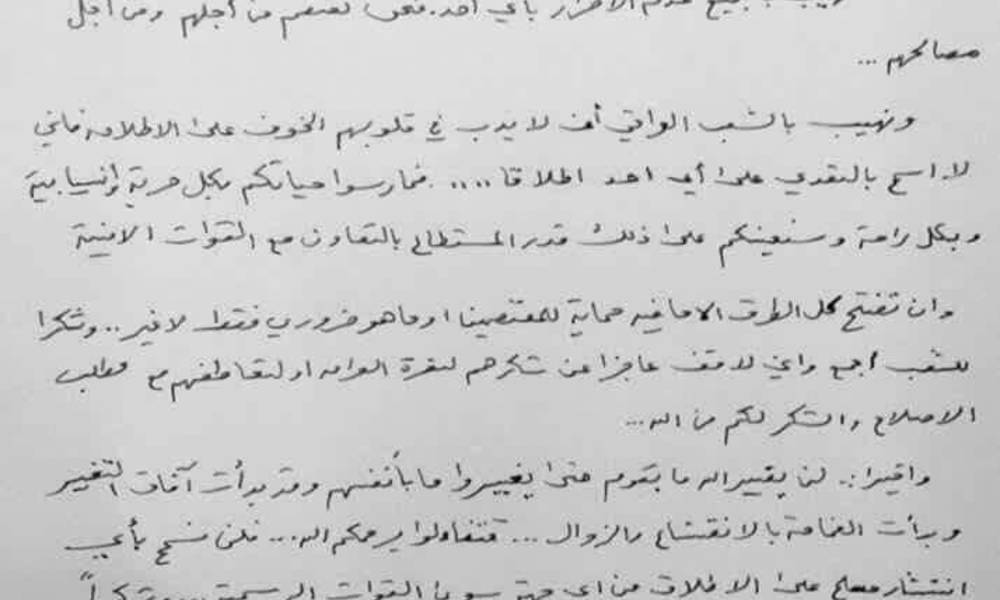 بجميع عدم الاضرار بأي احد. فنحن نعتصم من أجلهم ومن أجل
مصالحهم ...
ونهيب بالشعب العراقي أن لا يدب في قلوبهم الخوف على الاطلاق فاني
لا اسمح بالتعدي على أي احد اطلاقا .... فمارسوا حياتكم بكل حرية وانسيابية
وبكل راحة وسنعينكم على ذلك قدر المستطاع بالتعاون مع القوات الامنية
وان تفتح كل الطرق الا مافيه حماية للمعتصمين او ماهو ضروري فقط لا غير .. وشكرا
للشعب أجمع واني لاقف عاجزا عن شكرهم لنصرة العراق او لتعاطفهم مع مطلب
الاصلاح والشكر لكم من الله ...
واخيرا: لن يغير الله ما بقوم حتى يغيروا ما بأنفسهم وقد بدأت آفاق التغيير
وبدأت الغمامة بالانقشاع والزوال ... فتفاءلوا يرحمكم الله ... فلن نسمح بأي
انتشار مسلح على الاطلاق من اي جهة سوى القوات الرسمية